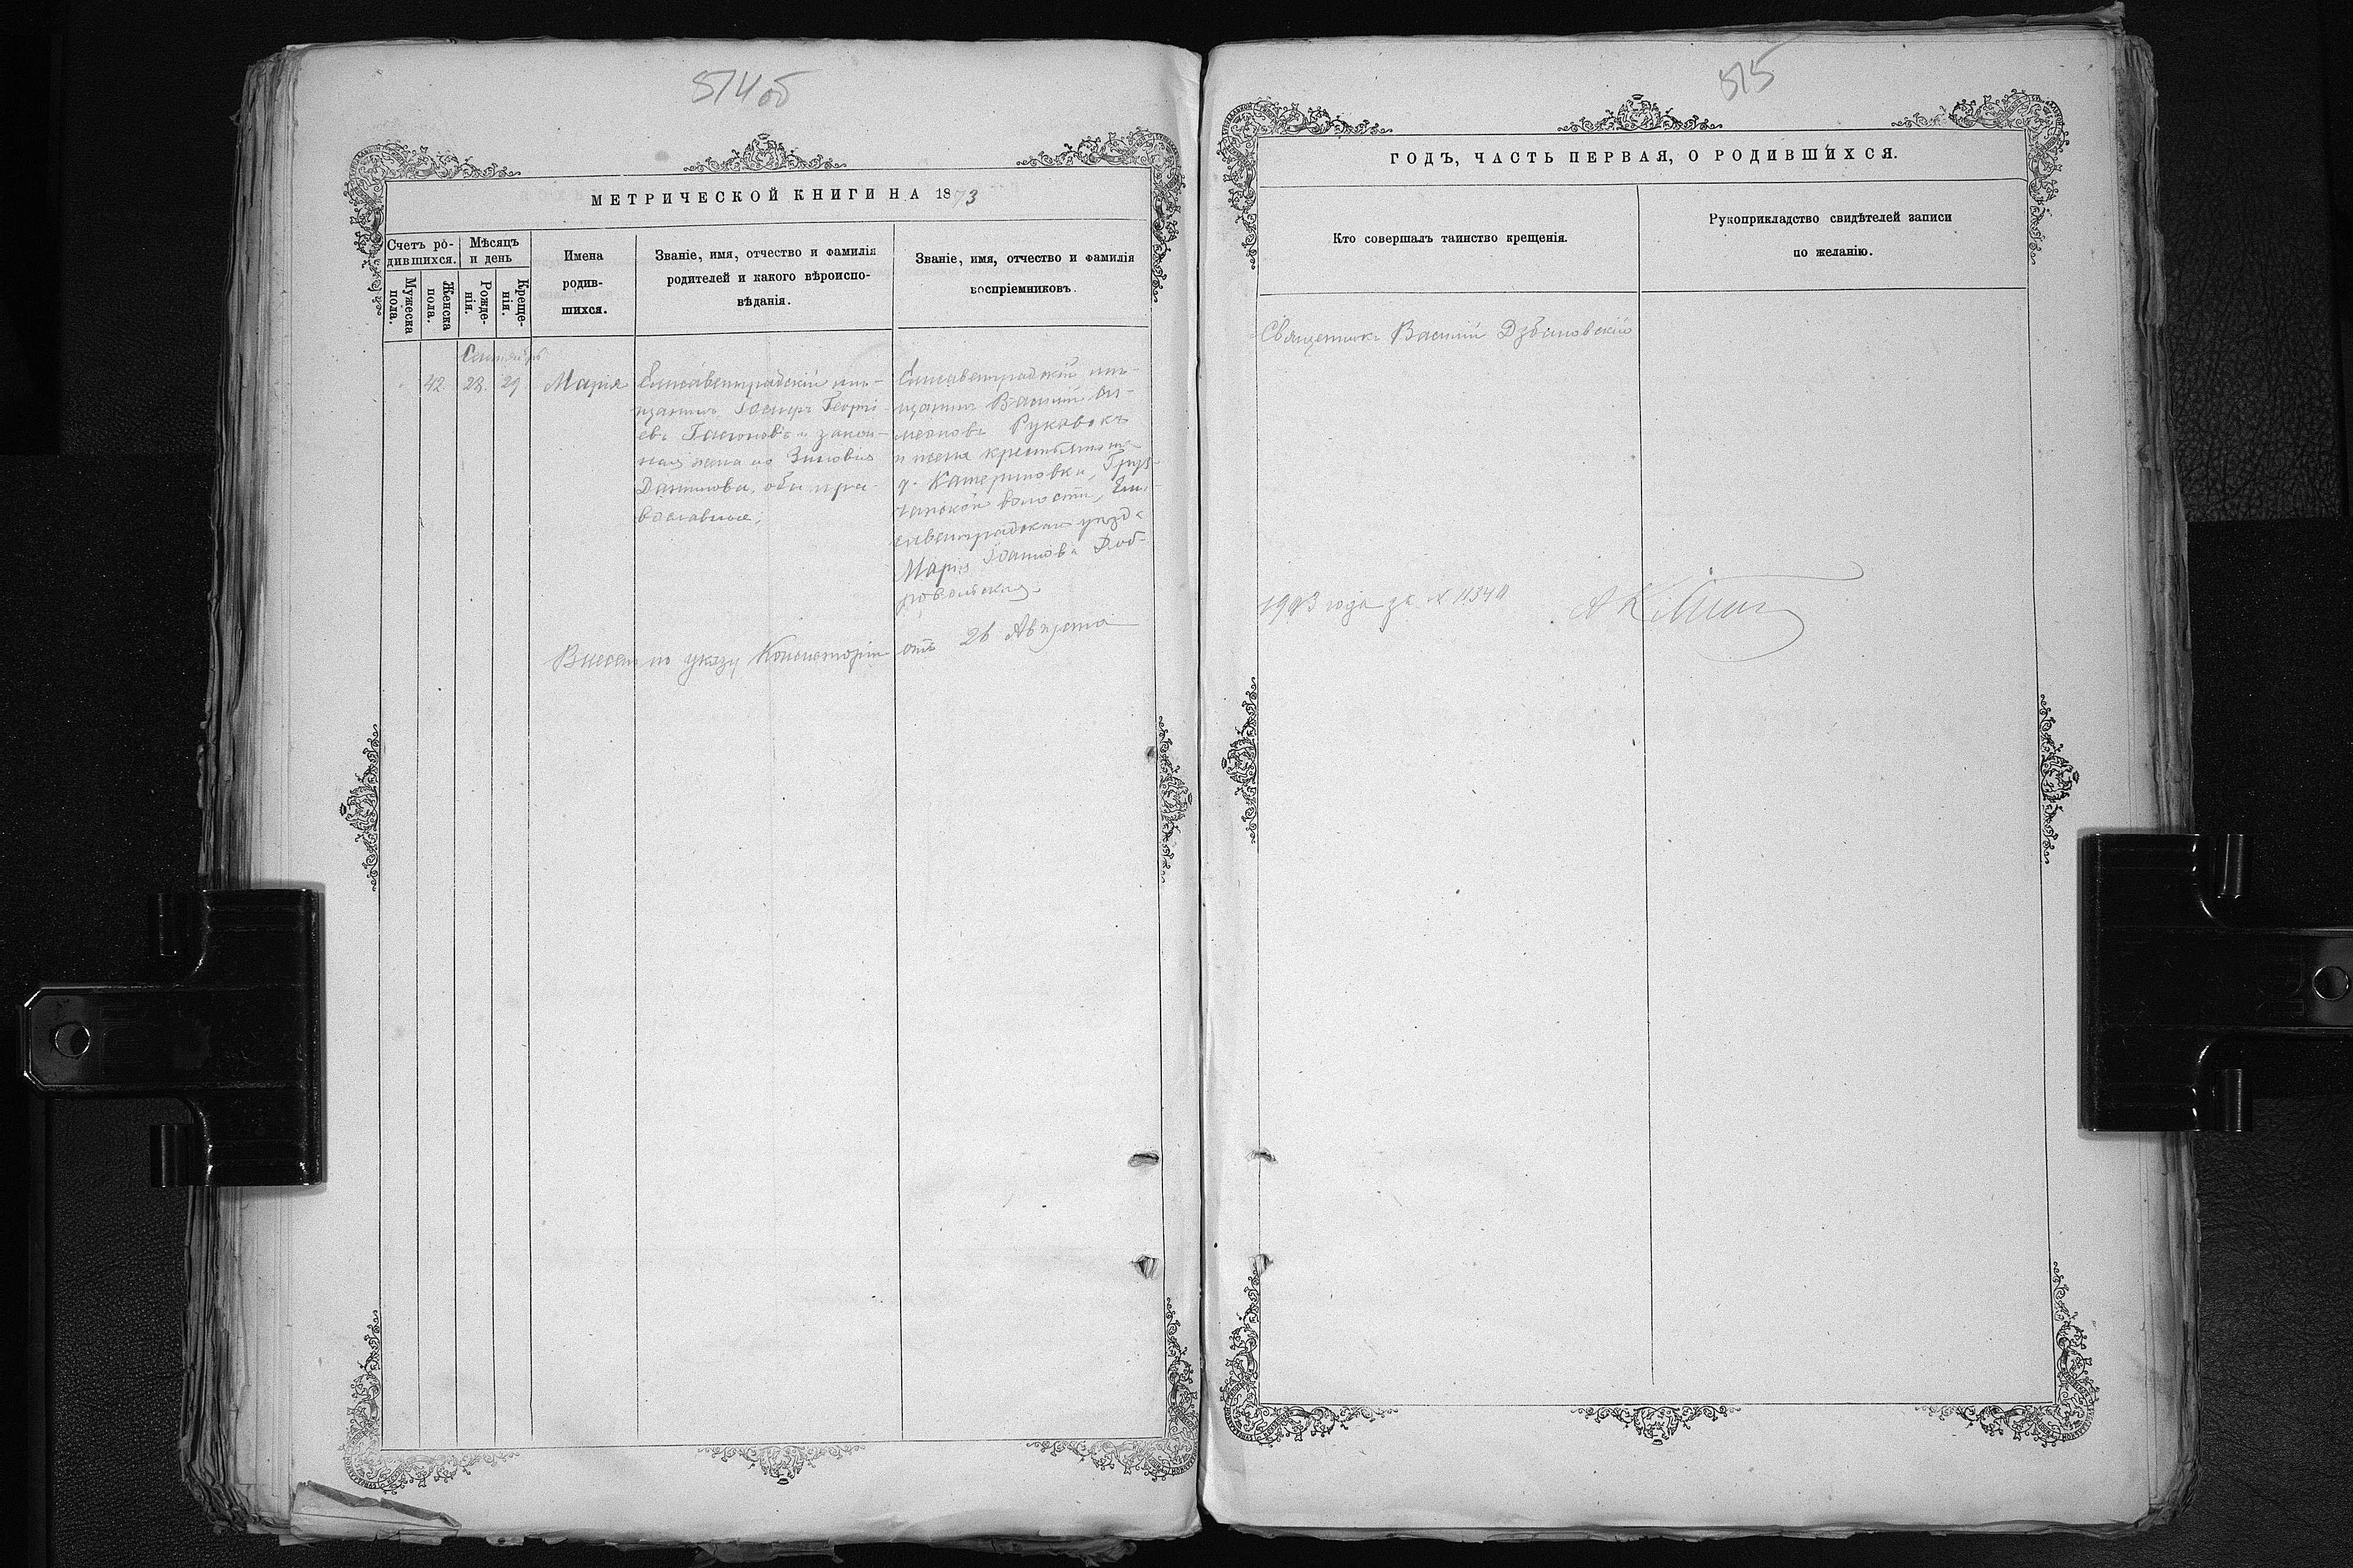 514об
МЕТРИЧЕСКОЙ КНИГИ НА 1873
Счетъ ро-
дившихся.
Мѣсяцъ
и день
Мужеска
пола.
Женска
пола.
Рожде-
нія.
Креще-
нія.
Имена
родив-
шихся.
Званіе, имя, отчество и фамилія
родителей и какого вѣроиспо-
вѣданія.
Званіе, имя, отчество и фамилія
воспріемниковъ.
Сентябрь
42. 28. 29 Марія
Елисаветградскій мѣ-
щанинъ Георгі-
евъ и закон-
ная жена его Зиновія
Данилова, оба пра-
вославные.
Елисаветградскій мѣ-
щанинъ Василій
и жена
д. Катериновки,
волости, Ели-
саветградскаго уѣзда
Марія Іоаннова Доб-
ровольская.
Внесен по указу Консисторіи отъ 26 Августа
515
ГОДЪ, ЧАСТЬ ПЕРВАЯ, О РОДИВШИХСЯ.
Кто совершалъ таинство крещенія.
Рукоприкладство свидѣтелей записи
по желанію.
Священникъ Василій
1903 года за №